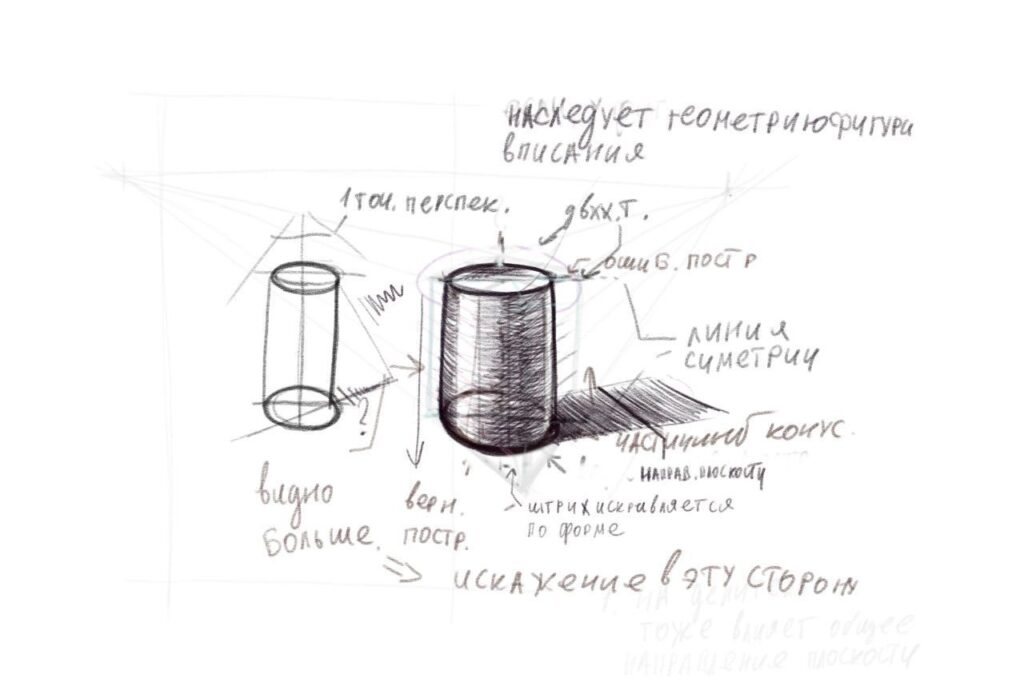 наследует геометрию фигуры
вписания
1 точ. перспек.
двух. т.
ошиб. постр
линия
симетрии
?
частичный конус.
направ. плоскости
видно
больше.
верн.
постр.
штрих искривляется
по форме
искажение в эту сторону
1. на
тоже влияет общее
направление плоскости